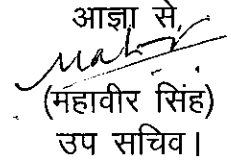 आज्ञा से,
(महावीर सिंह)
उप सचिव।